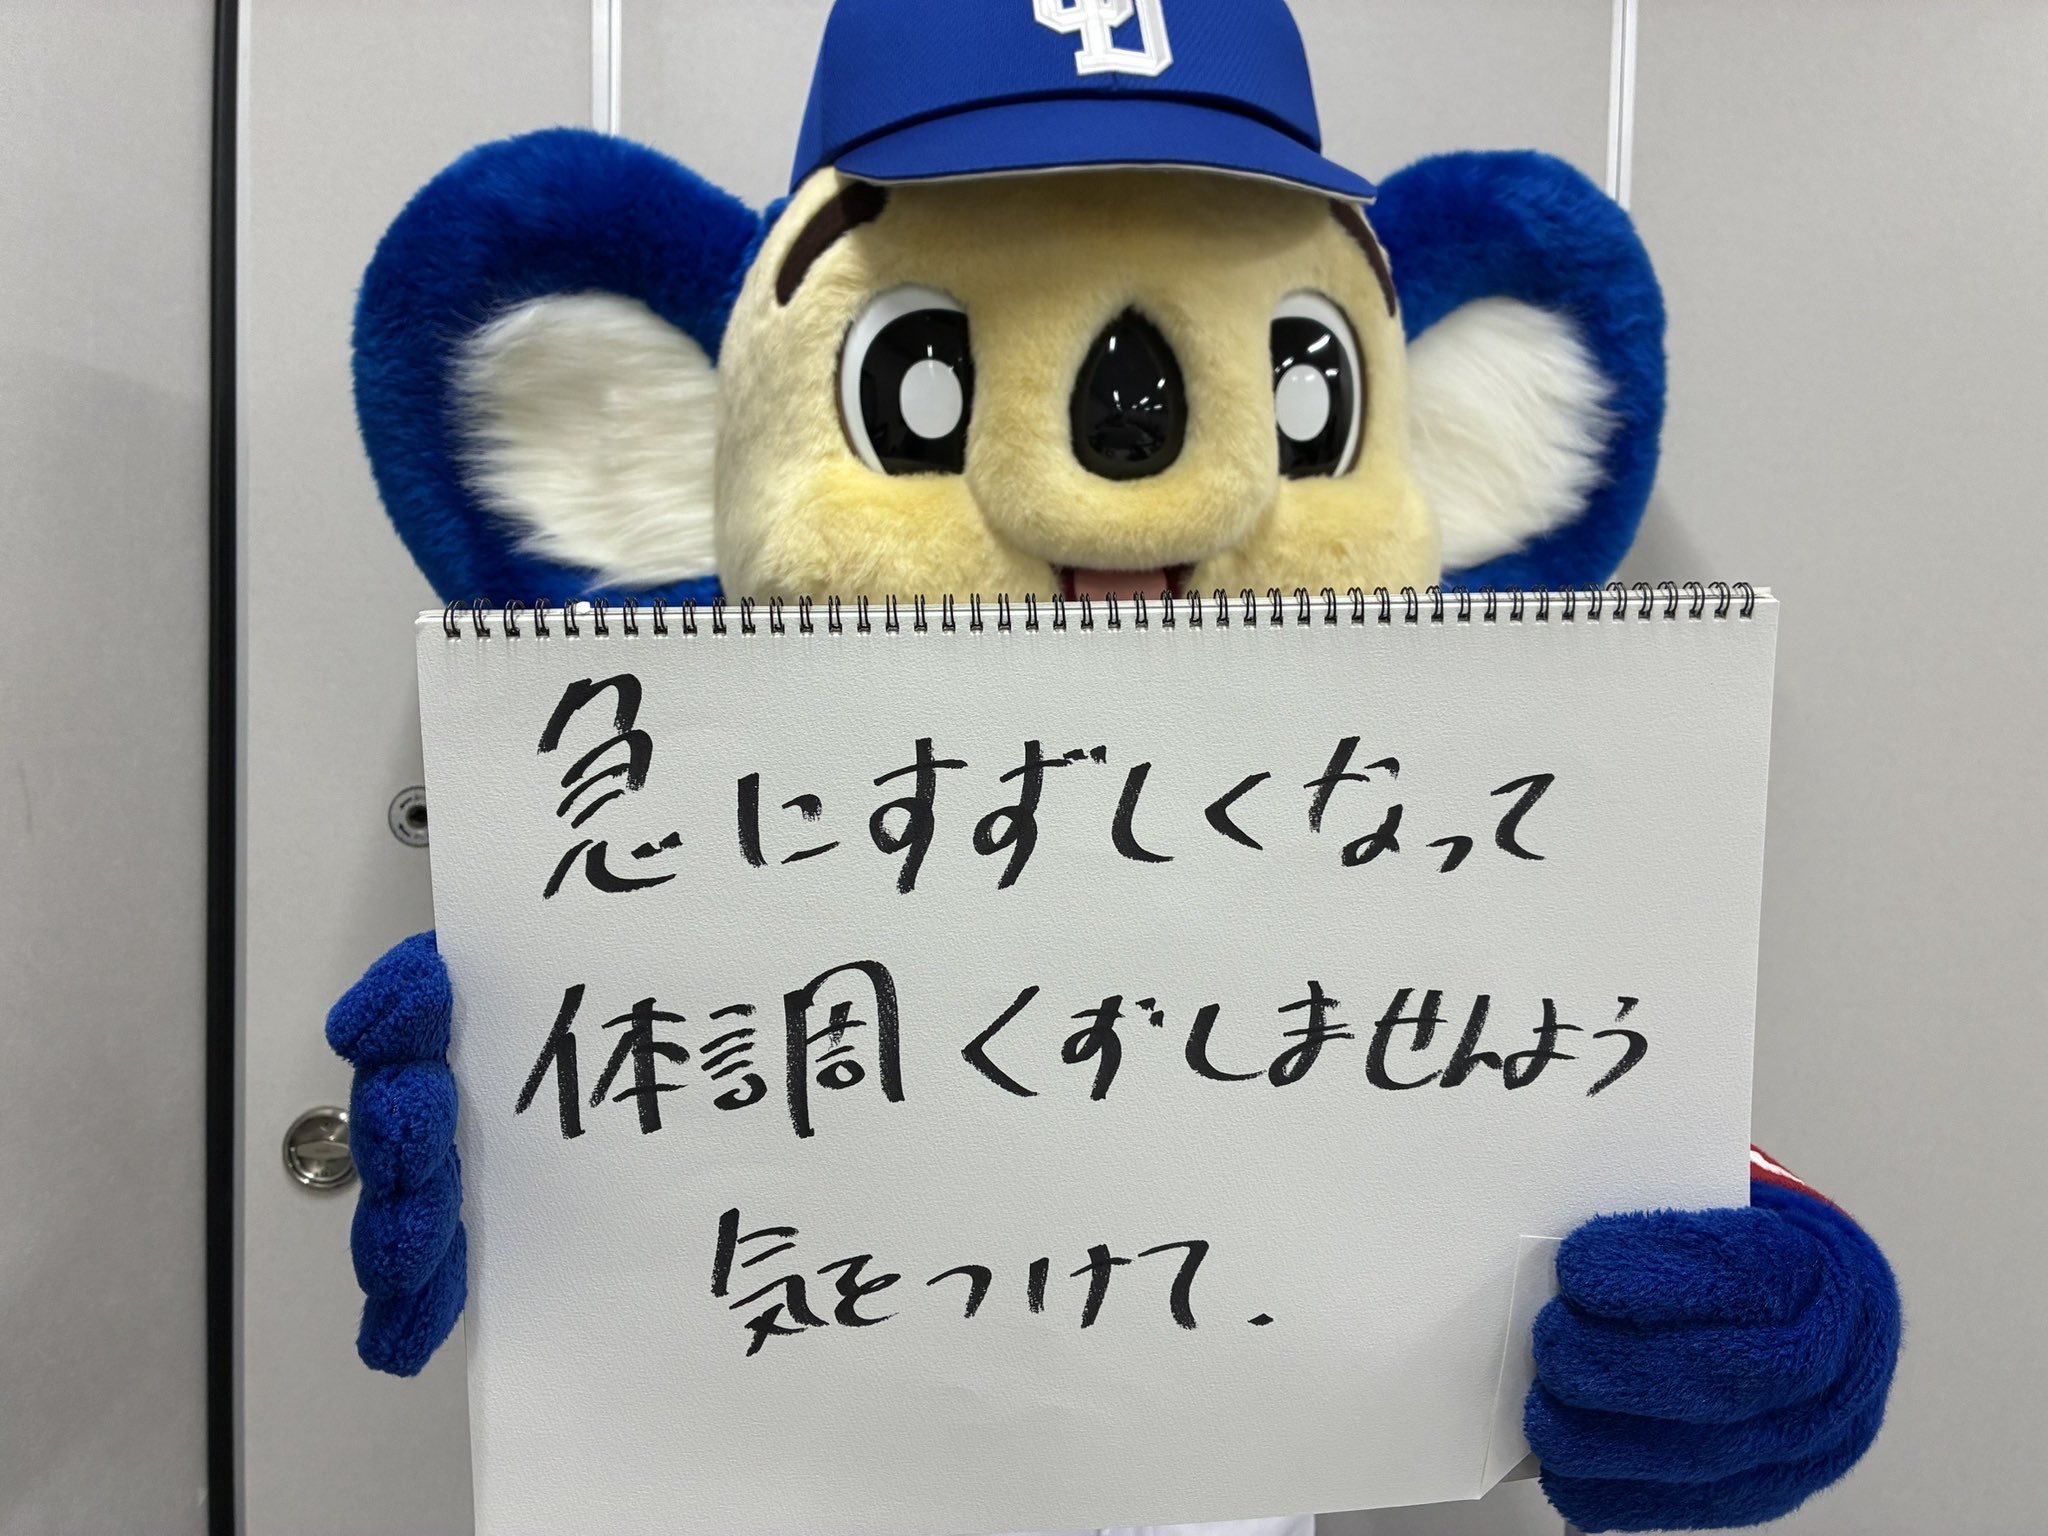 急にすずしくなって
体調くずしませんよう
気をつけて.